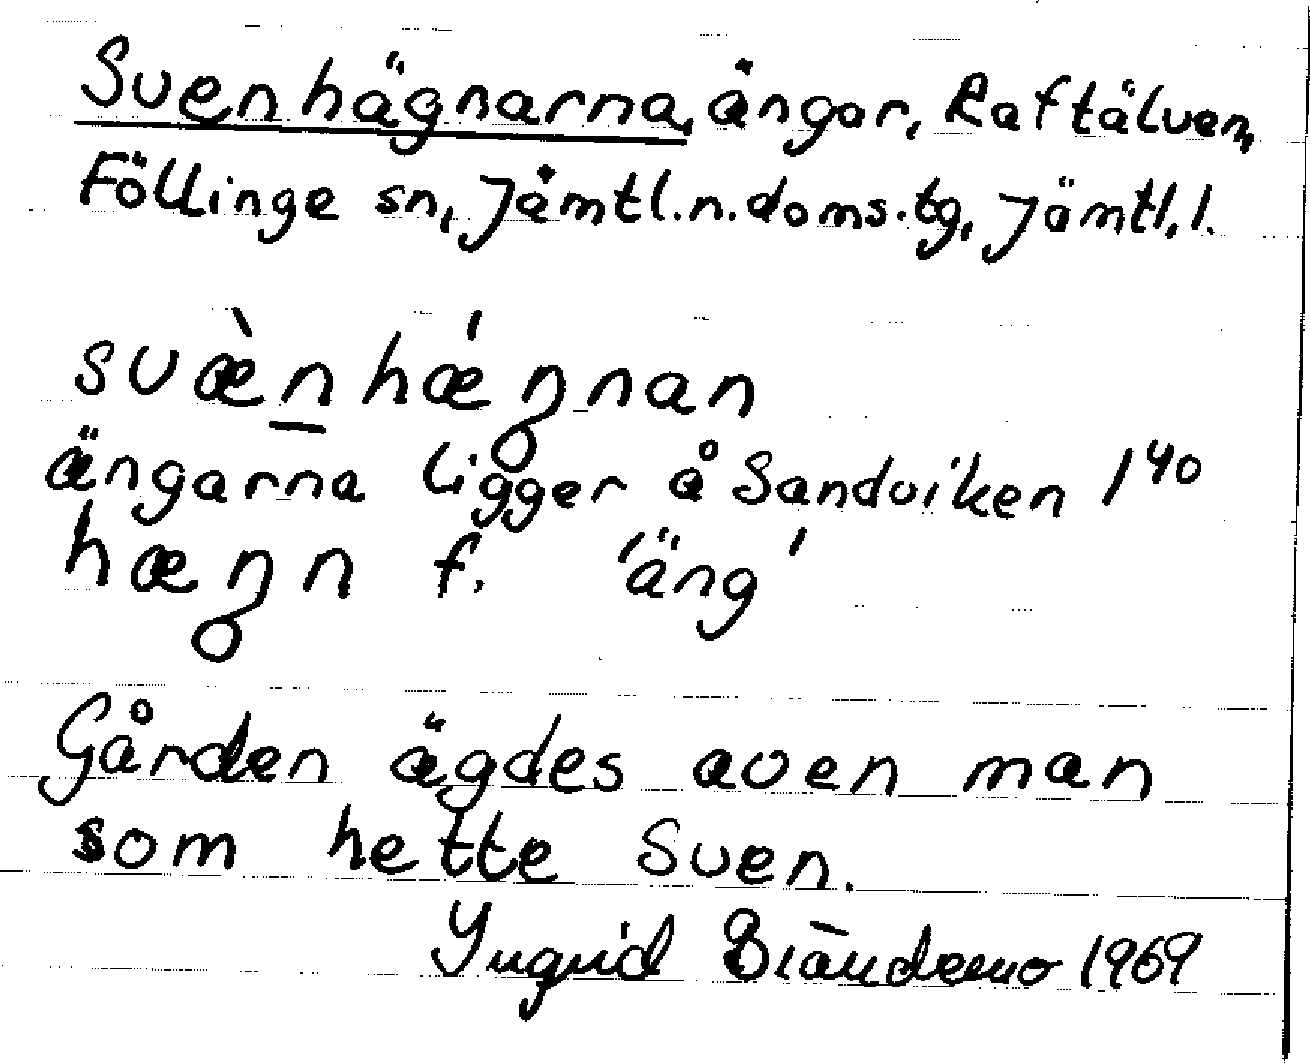 Svenhägnarna, ängar, Raftälven,
Föllinge sn, Jämtl.n.doms.tg, Jämtl.l.
svæ̀n̲hǽŋnan
ängarna ligger å Sandviken 1⁴⁰
hæŋn f. 'äng'
Gården ägdes aven man
som hette Sven.
Ingrid 1969